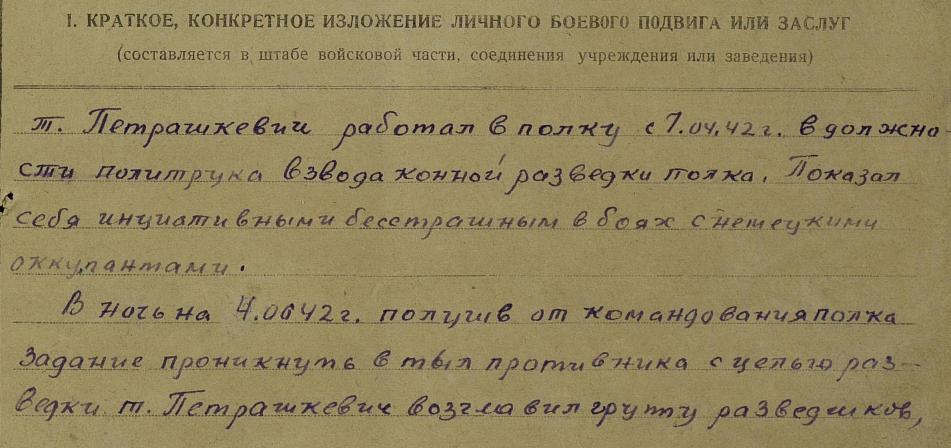 I. КРАТКОЕ, КОНКРЕТНОЕ ИЗЛОЖЕНИЕ ЛИЧНОГО БОЕВОГО ПОДВИГА ИЛИ ЗАСЛУГ
(составляется в штабе войсковой части, соединения учреждения или заведения)
т. Петрашкевич работал в полку с 7.04.42 г. в должно-
сти политрука взвода конной разведки полка. Показал
себя инциативным и бесстрашным в боях с немецкими
оккупантами.
В ночь на 4.06 42 г. получив от командования полка
задание проникнуть в тыл противника с целью раз-
ведки т. Петрашкевич возглавил группу разведчиков,